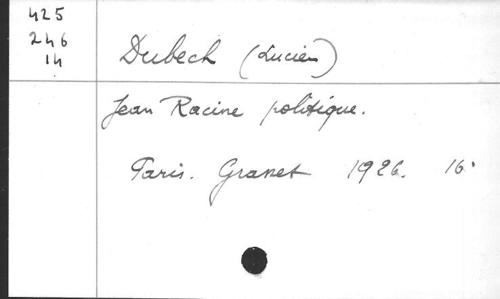 425
246
14
Dubech (Lucien)
Jean Racine politique.
Paris. Grasset 1926. 16°